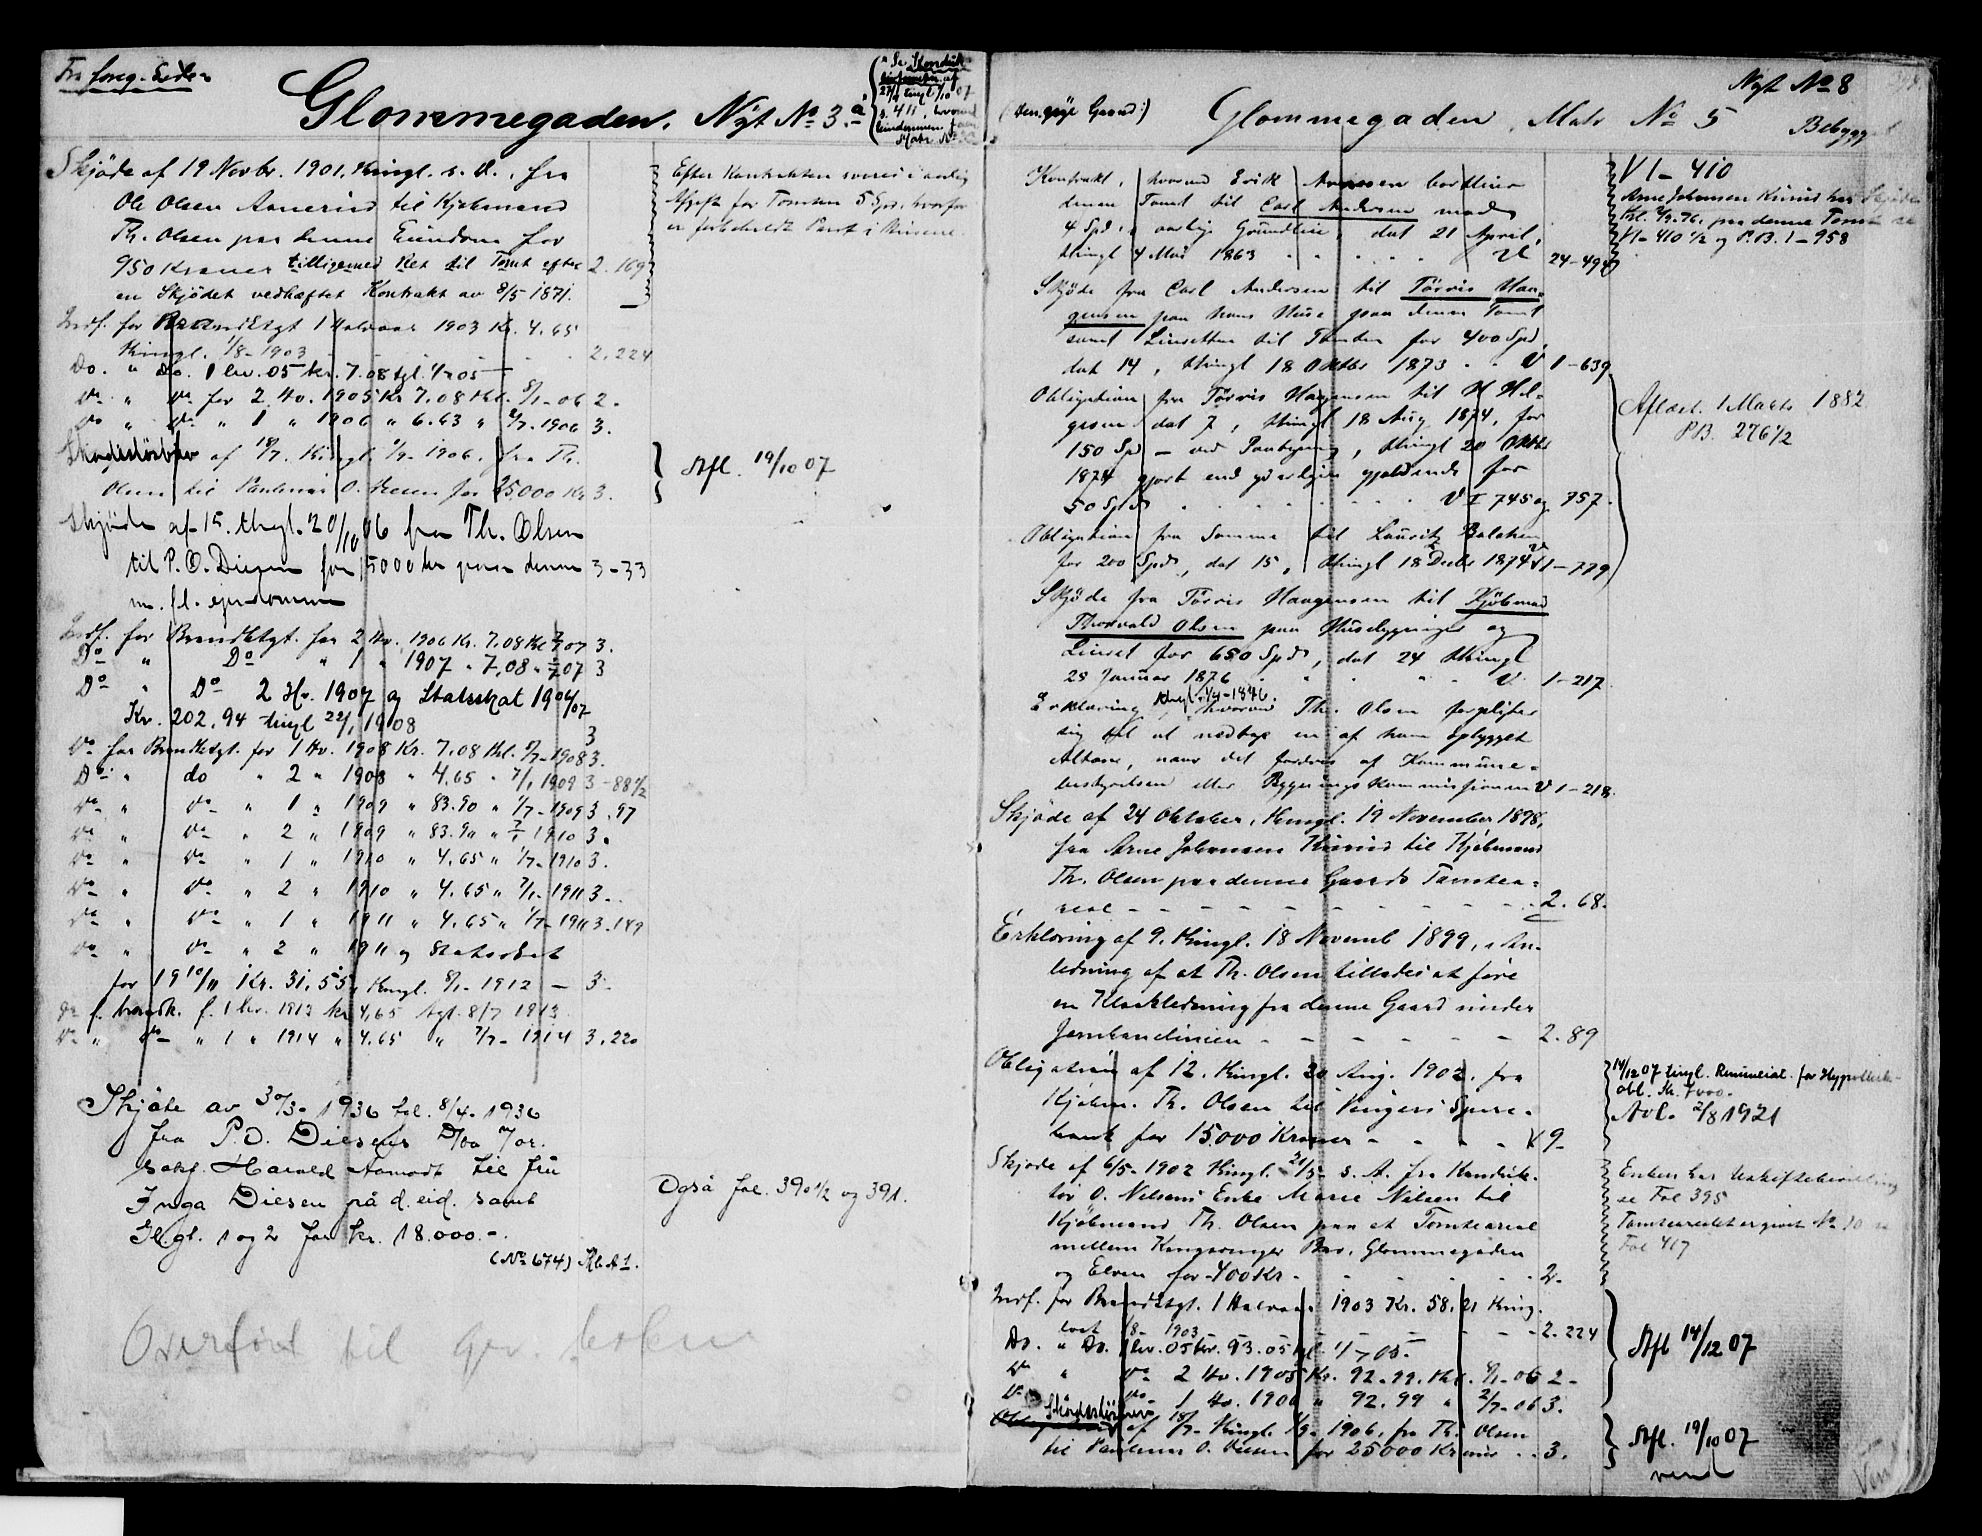 Fra foreg. Side
Glommegaden. Nyt No 3.a
Skjöde af 19 Novbr. 1901, thingl. s. D., fra
Ole Olsen Aanerud til Kjöbmand
Th. Olsen paa denne Eiendom for
950 Kroner tilligemed Ret til Tomt efter 2. 169
en Skjödet vedhæftet Kontrakt av 8/5 1871.
Efter Kontrakten svares i aarlig
Afgift for Tomten 5 Spd. hvorfor
er forbeholdt Pant i Husene.
Indf. for Brandktgt 1 Halvaar 1903 Kr. 4.65
thingl. 1/8-1903 2. 224
Do. " Do. 1 hv. 05 kr. 7.08 tgl. 1/7 05
Do " Do for 2 Hv. 1905 Kr 7.08 thl. 8/1-06 2.
Do " Do " 1 " 1906 " 6.63 " 2/7.1906 3.
Skadeslösbrev af 18/7. thingl. 1/9-1906, fra Th.
Olsen til Paulenus O. Diesen for 25000 Kr 3.
Afl. 19/10 07
Skjöde af 15. thgl. 20/10 06 fra Th. Olsen
til P. O. Diesen for 15000 kr paa denne 3-33
m. fl. ejendomme
Indf. for Brandktgt. for 2 Hv. 1906 Kr. 7.08 thl 07 3.
Do " Do " 1 " 1907 " 7,08 " 07 3
Do " Do 2 Hv. 1907 og Statsskat 1906/07
Kr. 202,94 tingl 22/1 1908 3
Do for Brandktgt. for 1 Hv. 1908 Kr. 7.08 thl. 8/7-1908 3.
Do " do " 2 " 1908 " 4.65 " 7/1 1909 3-88 1/2
Do " Do " 1 " 1909 " 83.90 " 1/7-1909 3.97
Do " Do " 2 " 1909 " 83.90 " 7/1 1910 3.
Do " Do " 1 " 1910 " 4.65 " 1/7-1910 3.
Do " Do " 2 " 1910 " 4.65 " 7/1-1911 3.
Do " Do " 1 " 1911 " 4.65 " 1/7-1911 3.149
Do " Do " 2 " 1911 og Statsskat
for 1910/11 Kr. 31.55, thingl. 8/1-1912 - 3.
do f. brandk. f. 1 hv. 1913 kr 4,65 tgl. 8/7 1913
Do " Do " 1 " 1914 " 4.65 " 7/7-1914 3.220
Skjöte av 30/3-1936 tgl. 8/4-1936
fra P. O. Diesens Dbo v/or.
sakf. Harald Aamodt til fru
Inga Diesen på d. eid. samt
Gl.gl. 1 og 2 for kr. 18.000.-.
(No 674)
Også fol. 390 1/2 og 391.
Overført til

Nyt No 8
(den nye Gaard:) Glommegaden, Matr No 5 Bebygget
Kontrakt, hvorved Erik Arnesen bortleier
denne Tomt til Carl Andersen mod
4 Spd. i aarlig Grundleie, dat 21 April,
thingl 4 Mai 1863 24-494
VI-410
Arne Johansen Kirrud har Skjöde
paa denne Tomt se
VI-410 1/2 og P.B. 1-958
Skjöde fra Carl Andersen til Törris Haa-
gensen paa hans Huse paa denne Tomt
samt Leieretten til Tomten for 400 Spd,
dat 14, thingl 18 Oktbr 1873 V 1-639
Obligation fra Törris Haagensen til H Hel-
gesen dat 7, thingl 18 Aug 1874, for
150 Spd - ved Paategning, thingl 20 Oktbr
1874 gjort end yderligere gjeldende for
50 Spd V I 745 og 757.
Aflæst. 1 Marts 1882
P.B. 276 1/2
Obligation fra Samme til Lauritz Balchen
for 200 Spd, dat 15, thingl 18 Decbr 1874 V 1-779
Skjöde fra Törris Haagensen til Kjöbmand
Thorvald Olsen paa Husebygninger og
Leieret for 650 Spd, dat 24 thingl
28 Januar 1876 V. 1-217
Erklæring, thgl. 1/4-1876. hvorved Th. Olsen forpligter
sig til at nedtage en af ham opbygget
Altan, naar det fordres af Kommune-
bestyrelsen eller Bygningskommissionen V 1-218.
Skjöde af 24 Oktober, thingl. 19 November 1898,
fra Arne Johansen Kirrud til Kjöbmand
Th. Olsen paa denne Gaards Tomtea-
real - 2. 68.
Erklæring af 9. thingl. 18 Novemb 1899, i An-
ledning af at Th. Olsen tillades at føre
en Kloakledning fra denne Gaard under
Jernbanelinien - 2. 89
Obligation af 12. thingl. 20 Aug. 1902. fra
Kjöbm. Th. Olsen til Vingers Spare-
bank for 15.000 Kroner - 9-
14/12 07 tingl. Renunciat. for Hypothek-
obl. Kr. 7000.-
Avl. 2/8 1921
Skjöde af 6/5-1902 thingl. 21/5- s. A. fra Konduk-
tör O. Nilsens Enke Marie Nilsen til
Kjöbmand Th. Olsen paa et Tomteareal
mellem Kongsvinger Bro, Glommegaden
og Elven for 400 Kr. 2.
Enken har Uskiftebevilling
se Fol 395
Tomtearealet er givet No 10 se
Fol 417
Indf. for Brandktgt. 1 Halvaar 1903 Kr. 58.21 thing-
lært 1/8-1903 - 2.224
Do. " Do. 1 hv. 05 kr. 93.05 tgl. 1/7 05.
Do " Do 2 Hv. 1905 Kr. 92.99. thl. 8/1-06 2-
Do Do 1 Hv. 1906 " 92.99 " 2/7-06 3.
Afl 14/12 07
Skadeslösbrev af 18/7- thingl. 1/9-1906. fra Th. Olsen
til Paulenus O. Diesen for 25000 Kroner 3.
Afl. 19/10 07
vend